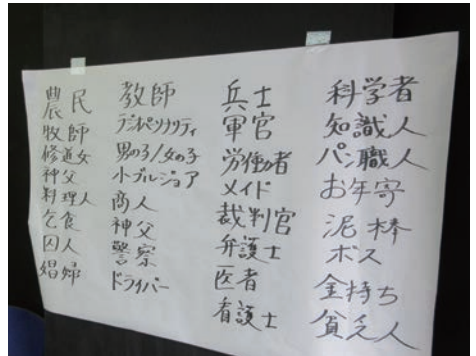 農民
牧師
修道女
神父
料理人
乞食
囚人
娼婦
教師
男の子/女の子
小ブルジョア
商人
神父
警察
ドライバー
兵士
軍官
労働者
メイド
裁判官
弁護士
医者
看護士
科学者
知識人
パン職人
お年寄
泥棒
ボス
金持ち
貧乏人